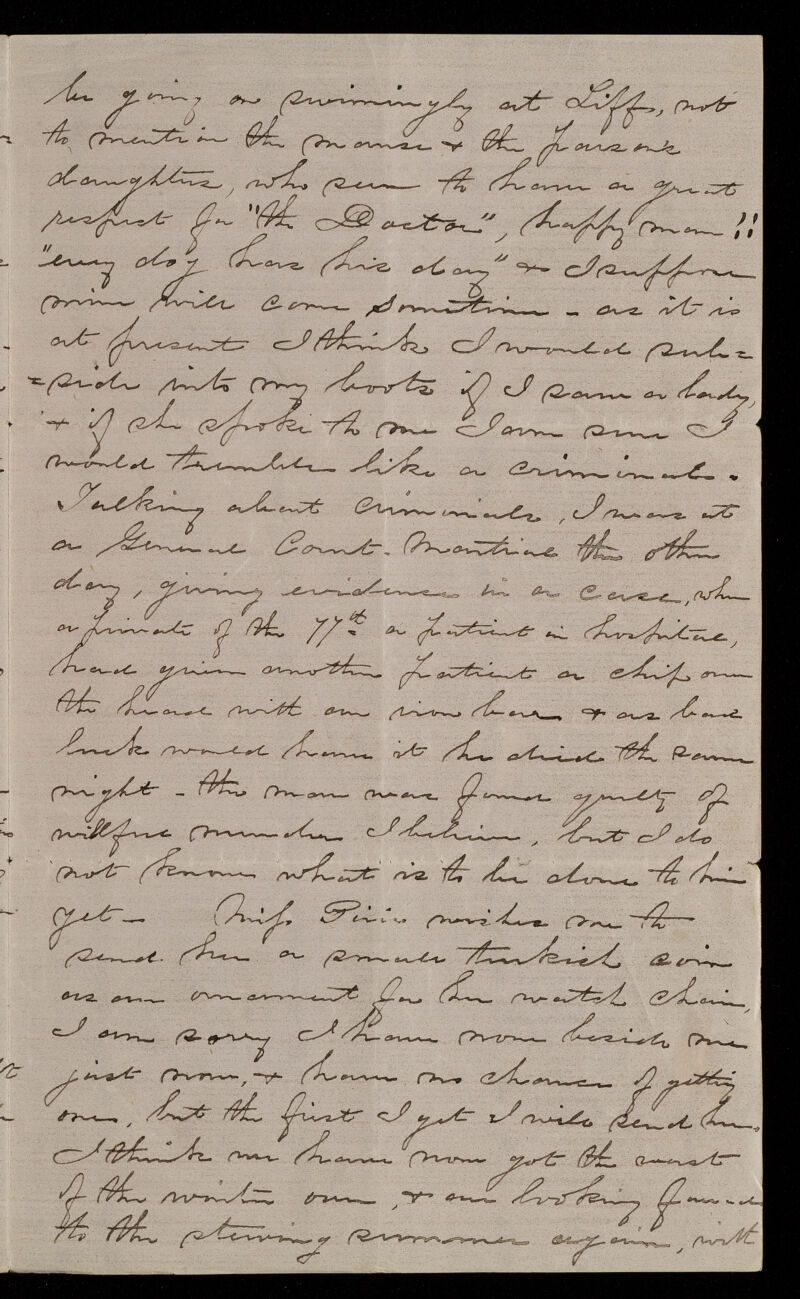 be going on swimingly at Liff, not
to mention the manse & the parson's
daughters, who seem to have a great
respect for "the Doctor", happy man!!
"every dog has his day" & I suppose
mine will come sometime - as it is
at present I think I would sub=
=side into my boots if I saw a lady,
& if she spoke to me I am sure I
would tremble like a criminal.
Talking about criminals, I was at
a General Court-Martial the other
day, giving evidence in a case, when
a private of the 77th a patient in hospital,
had given another patient a chip over
the head with an iron bar & as bad
luck would have it he died the same
night - the man was found guilty of
willful murder I believe, but I do
not know what is to be done to him
yet - Miss Pirie wishes me to
send her a small turkish coin
as an ornament for her watch chain,
I am sorry I have none beside me
just now, & have no chance of getting
one, but the first I get I will send her.
I think we have now got the worst
of the winter over, & are looking forward
to the stewing summer again, with